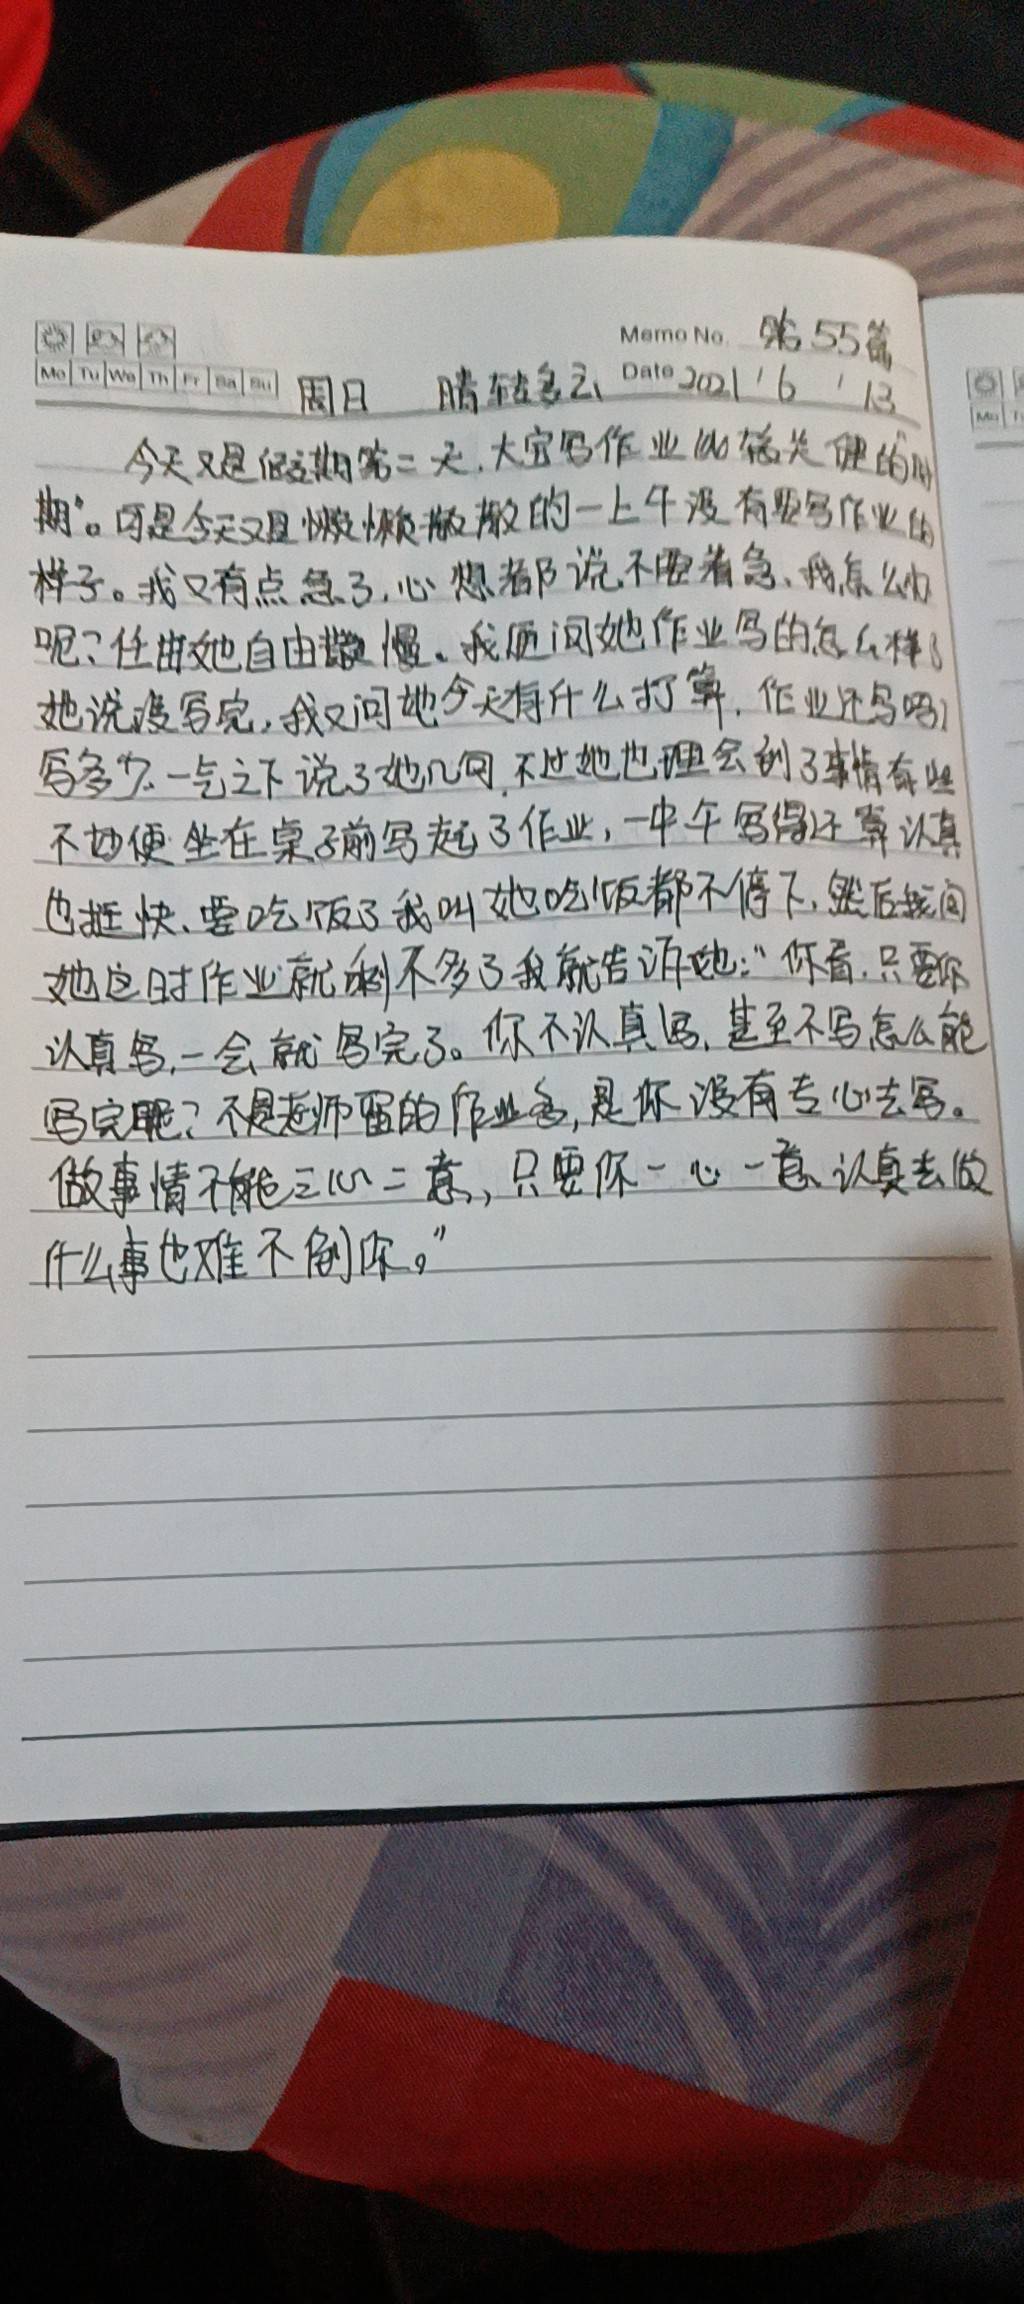 Memo No. 第55篇
Mo Tu We Th Fr Sa Su 周日 晴转多云 Date 2021 / 6 / 13
今天又是假期第二天,大宝写作业的关健的时
期。可是今天又是懒懒散散的一上午没有要写作业的
样子。我又有点急了,心想都说不要着急、我怎么办
呢?任由她自由散慢。我便问她作业写的怎么样了
她说没写完,我又问她今天有什么打算,作业还写吗?
写多少.一气之下说了她几句,不过她也理会到了事情有些
不妙便坐在桌子前写起了作业,一中午写得还算认真
也挺快、要吃饭了我叫她吃饭都不停下,然后我问
她这时作业就剩不多了我就告诉她:“你看,只要你
认真写,一会就写完了。你不认真写,甚至不写怎么能
写完呢?不是老师留的作业多,是你没有专心去写。
做事情不能三心二意,只要你一心一意、认真去做
什么事也难不倒你。”
Mo